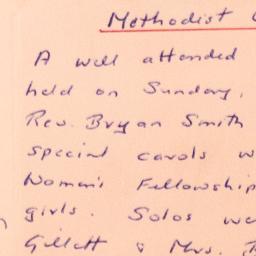 Methodist
A well attended
held on Sunday,
Rev. Bryan Smith
special carols
Women's Fellowship
girls. Solos
Gillett & Mrs.